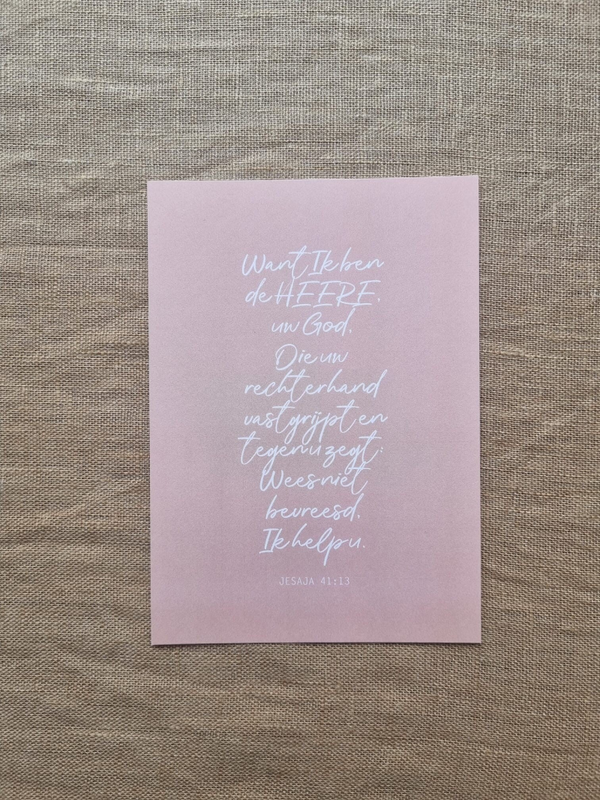 Want Ik ben
de HEERE,
uw God,
Die uw
rechterhand
vastgrijpt en
tegen u zegt:
Wees niet
bevreesd,
Ik help u.
JESAJA 41:13